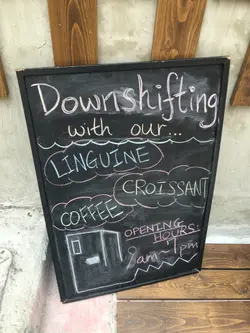 Downshifting
with our...
LINGUINE
CROISSANT
COFFEE
OPENING
HOURS:
9am~1pm